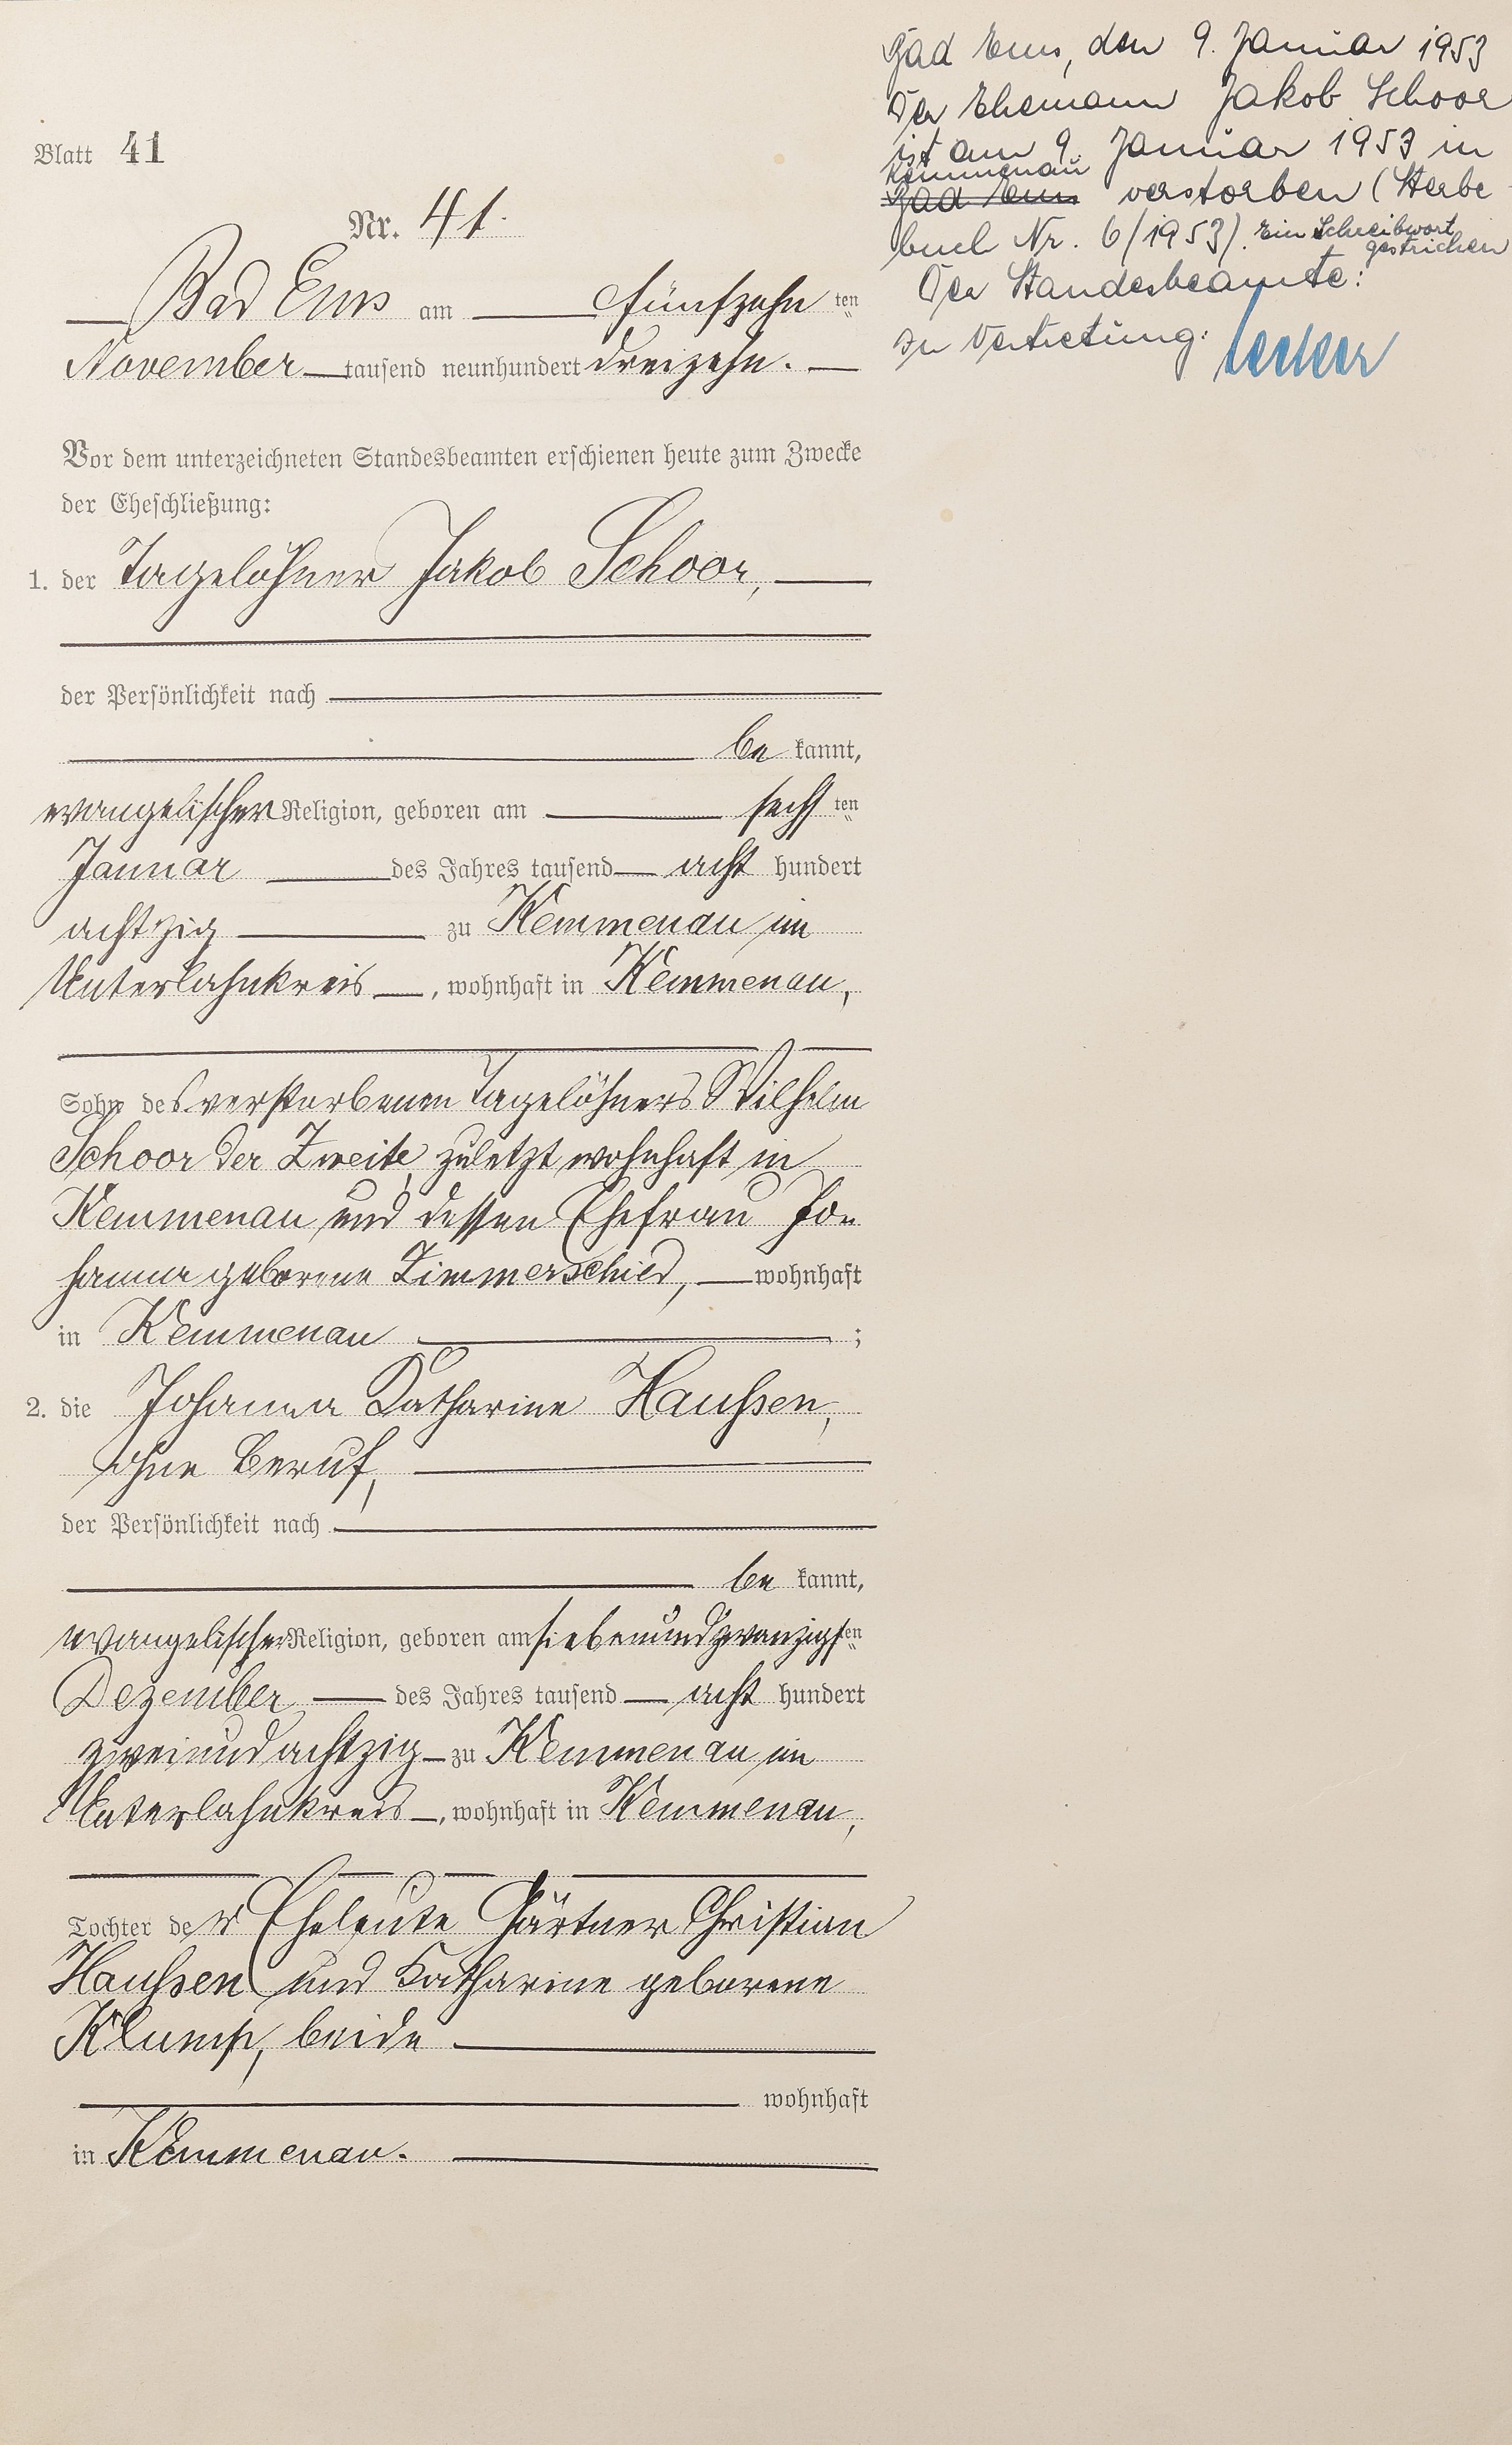 Blatt 41
Nr. 41.
Bad Ems am fünfzehn ten
November tausend neunhundert dreizehn.
Vor dem unterzeichneten Standesbeamten erschienen heute zum Zwecke
der Eheschließung:
1. der Tagelöhner Jakob Schoor,
der Persönlichkeit nach
be kannt,
evangelischer Religion, geboren am sechs ten
Januar des Jahres tausend acht hundert
achtzig zu Kemmenau im
Unterlahnkreis, wohnhaft in Kemmenau,
Sohn des verstorbenen Tagelöhners Wilhelm
Schoor der Zweite, zuletzt wohnhaft in
Kemmenau und dessen Ehefrau Jo-
hanna geborene Zimmerschied, wohnhaft
in Kemmenau ;
2. die Johanna Katharine Haußen,
ohne Beruf,
der Persönlichkeit nach
be kannt,
evangelischer Religion, geboren am siebenundzwanzigsten
Dezember des Jahres tausend acht hundert
zweiundachtzig zu Kemmenau im
Unterlahnkreis, wohnhaft in Kemmenau,
Tochter der Eheleute Gärtner Christian
Haußen und Katharine geborene
Klump, beide
wohnhaft
in Kemmenau.
Bad Ems, den 9. Januar 1953
Der Ehemann Jakob Schoor
ist am 9. Januar 1953 in
Kemmenau
Bad Ems verstorben (Sterbe
buch Nr. 6/1953). Ein Schreibwort
gestrichen
Der Standesbeamte:
In Vertretung: